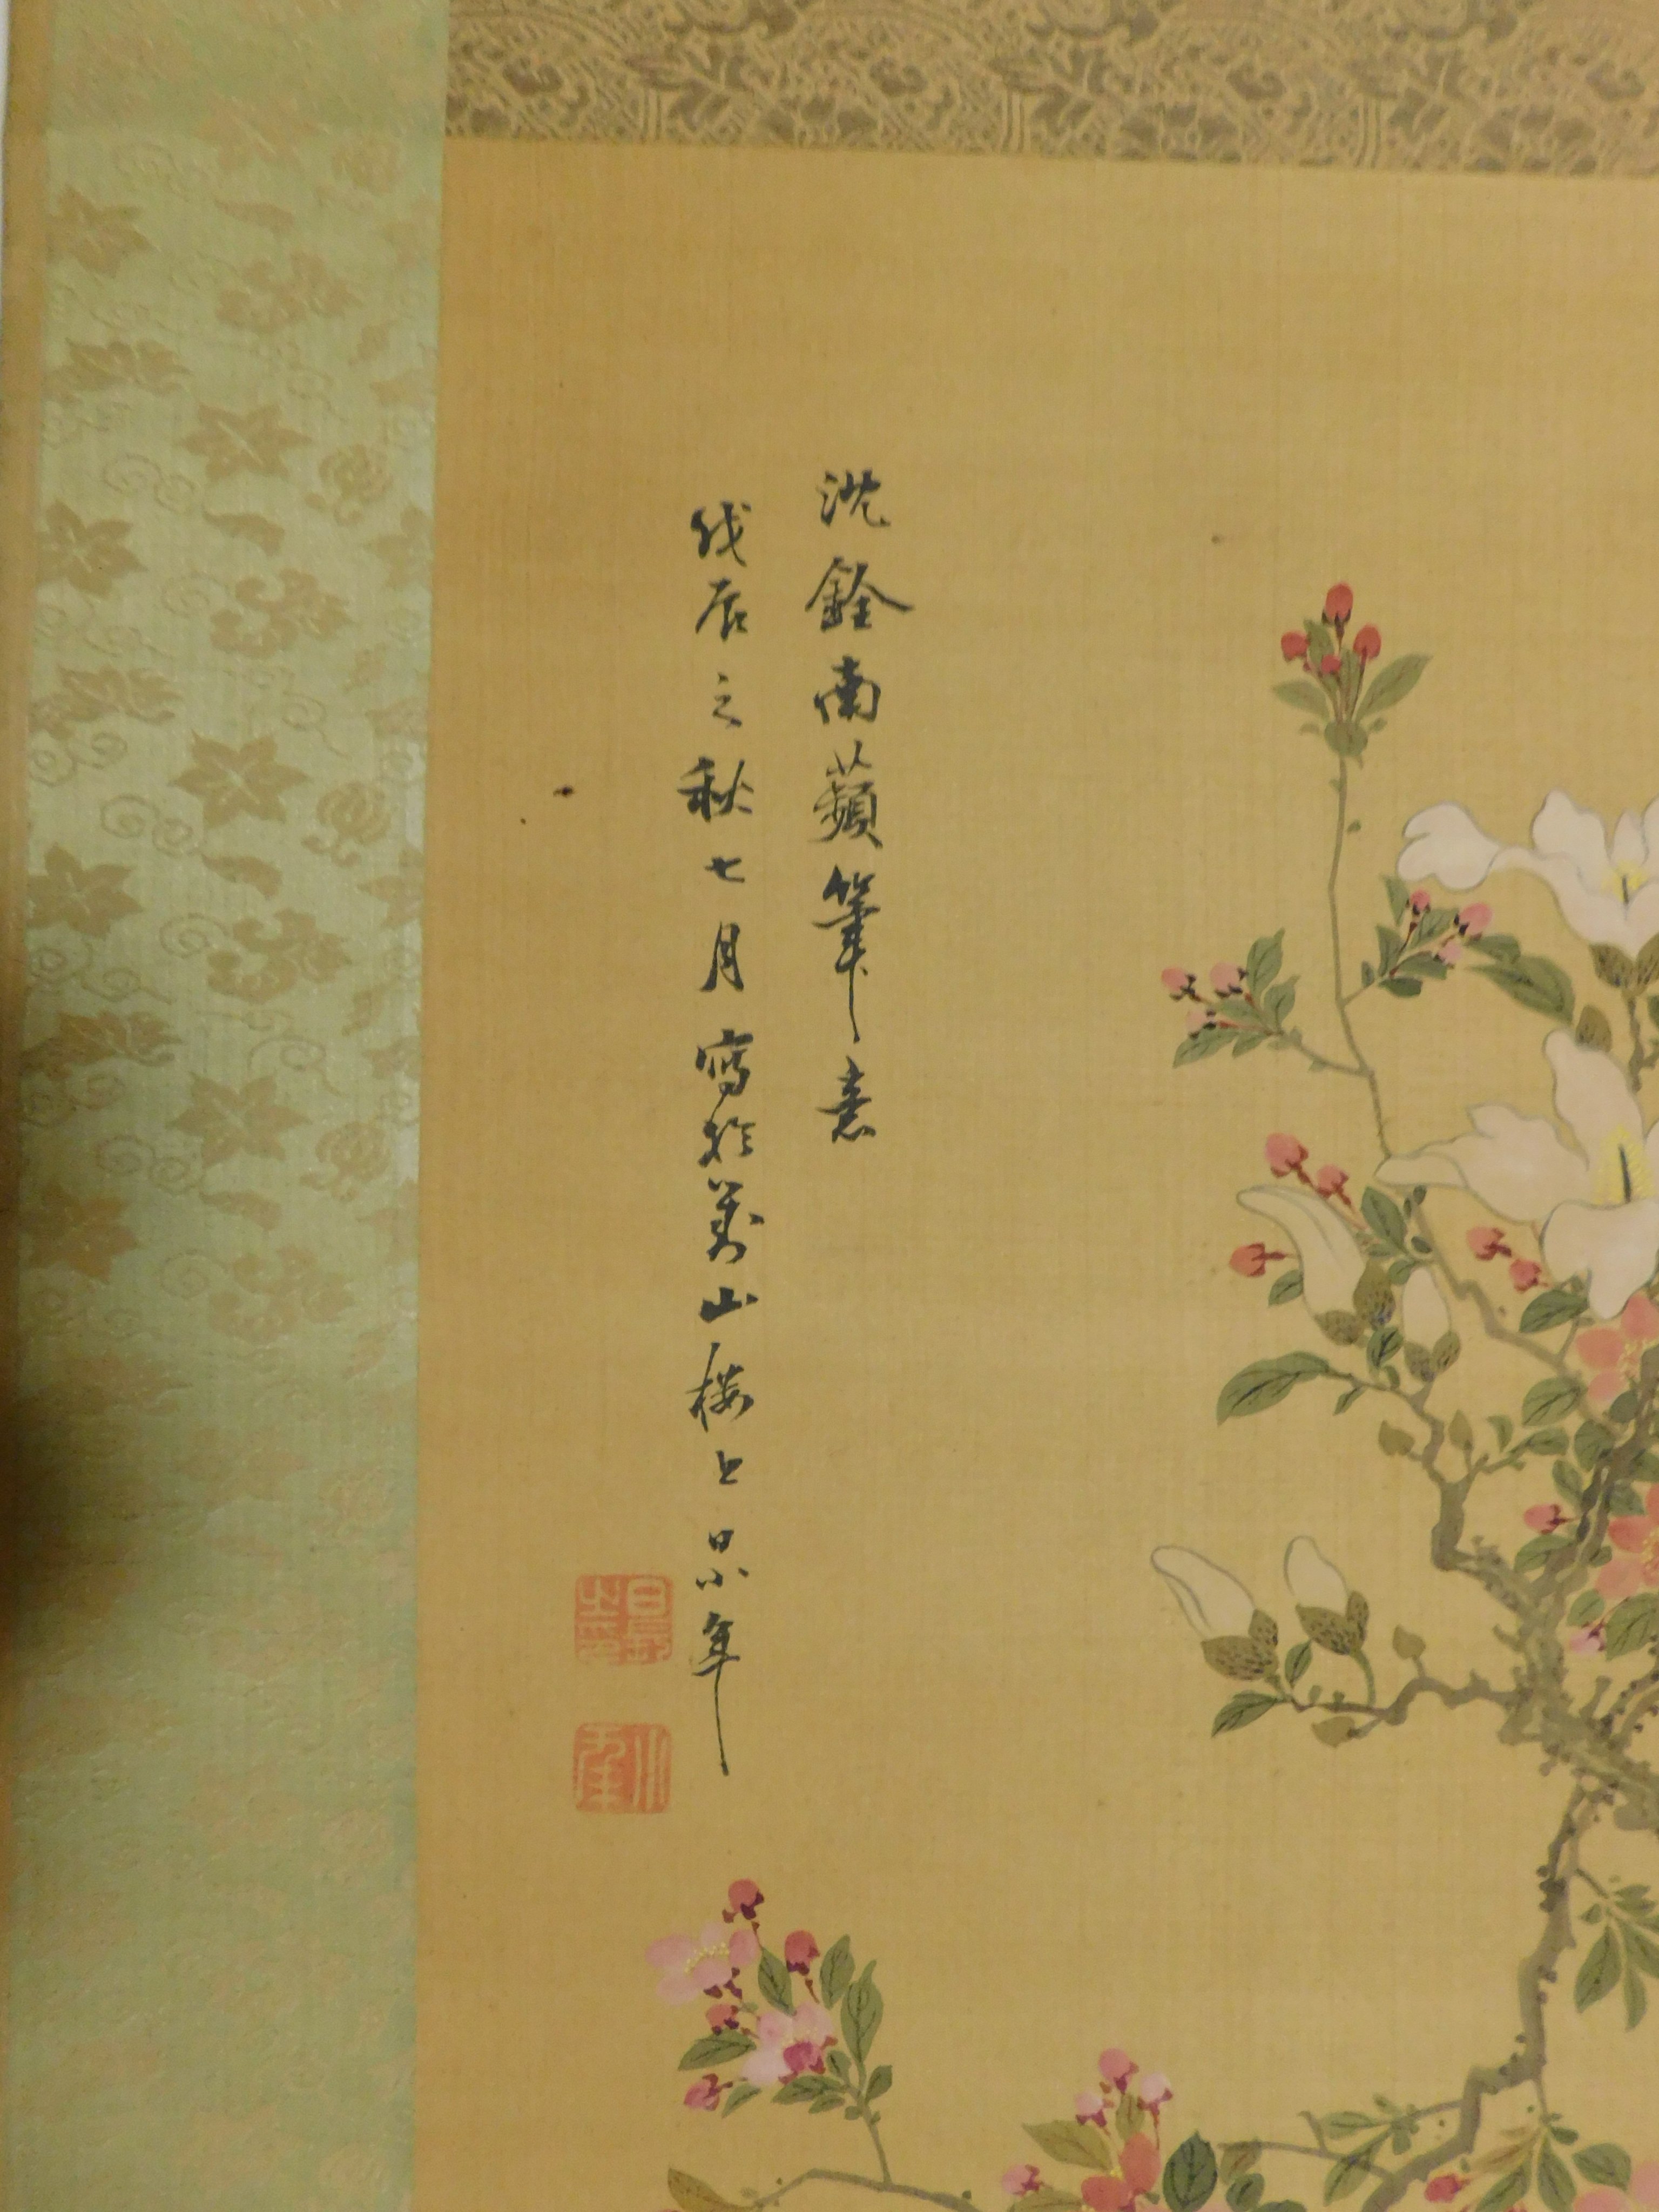 沈銓南蘋筆意
戊辰之秋七月寫於萬山樓上 景年